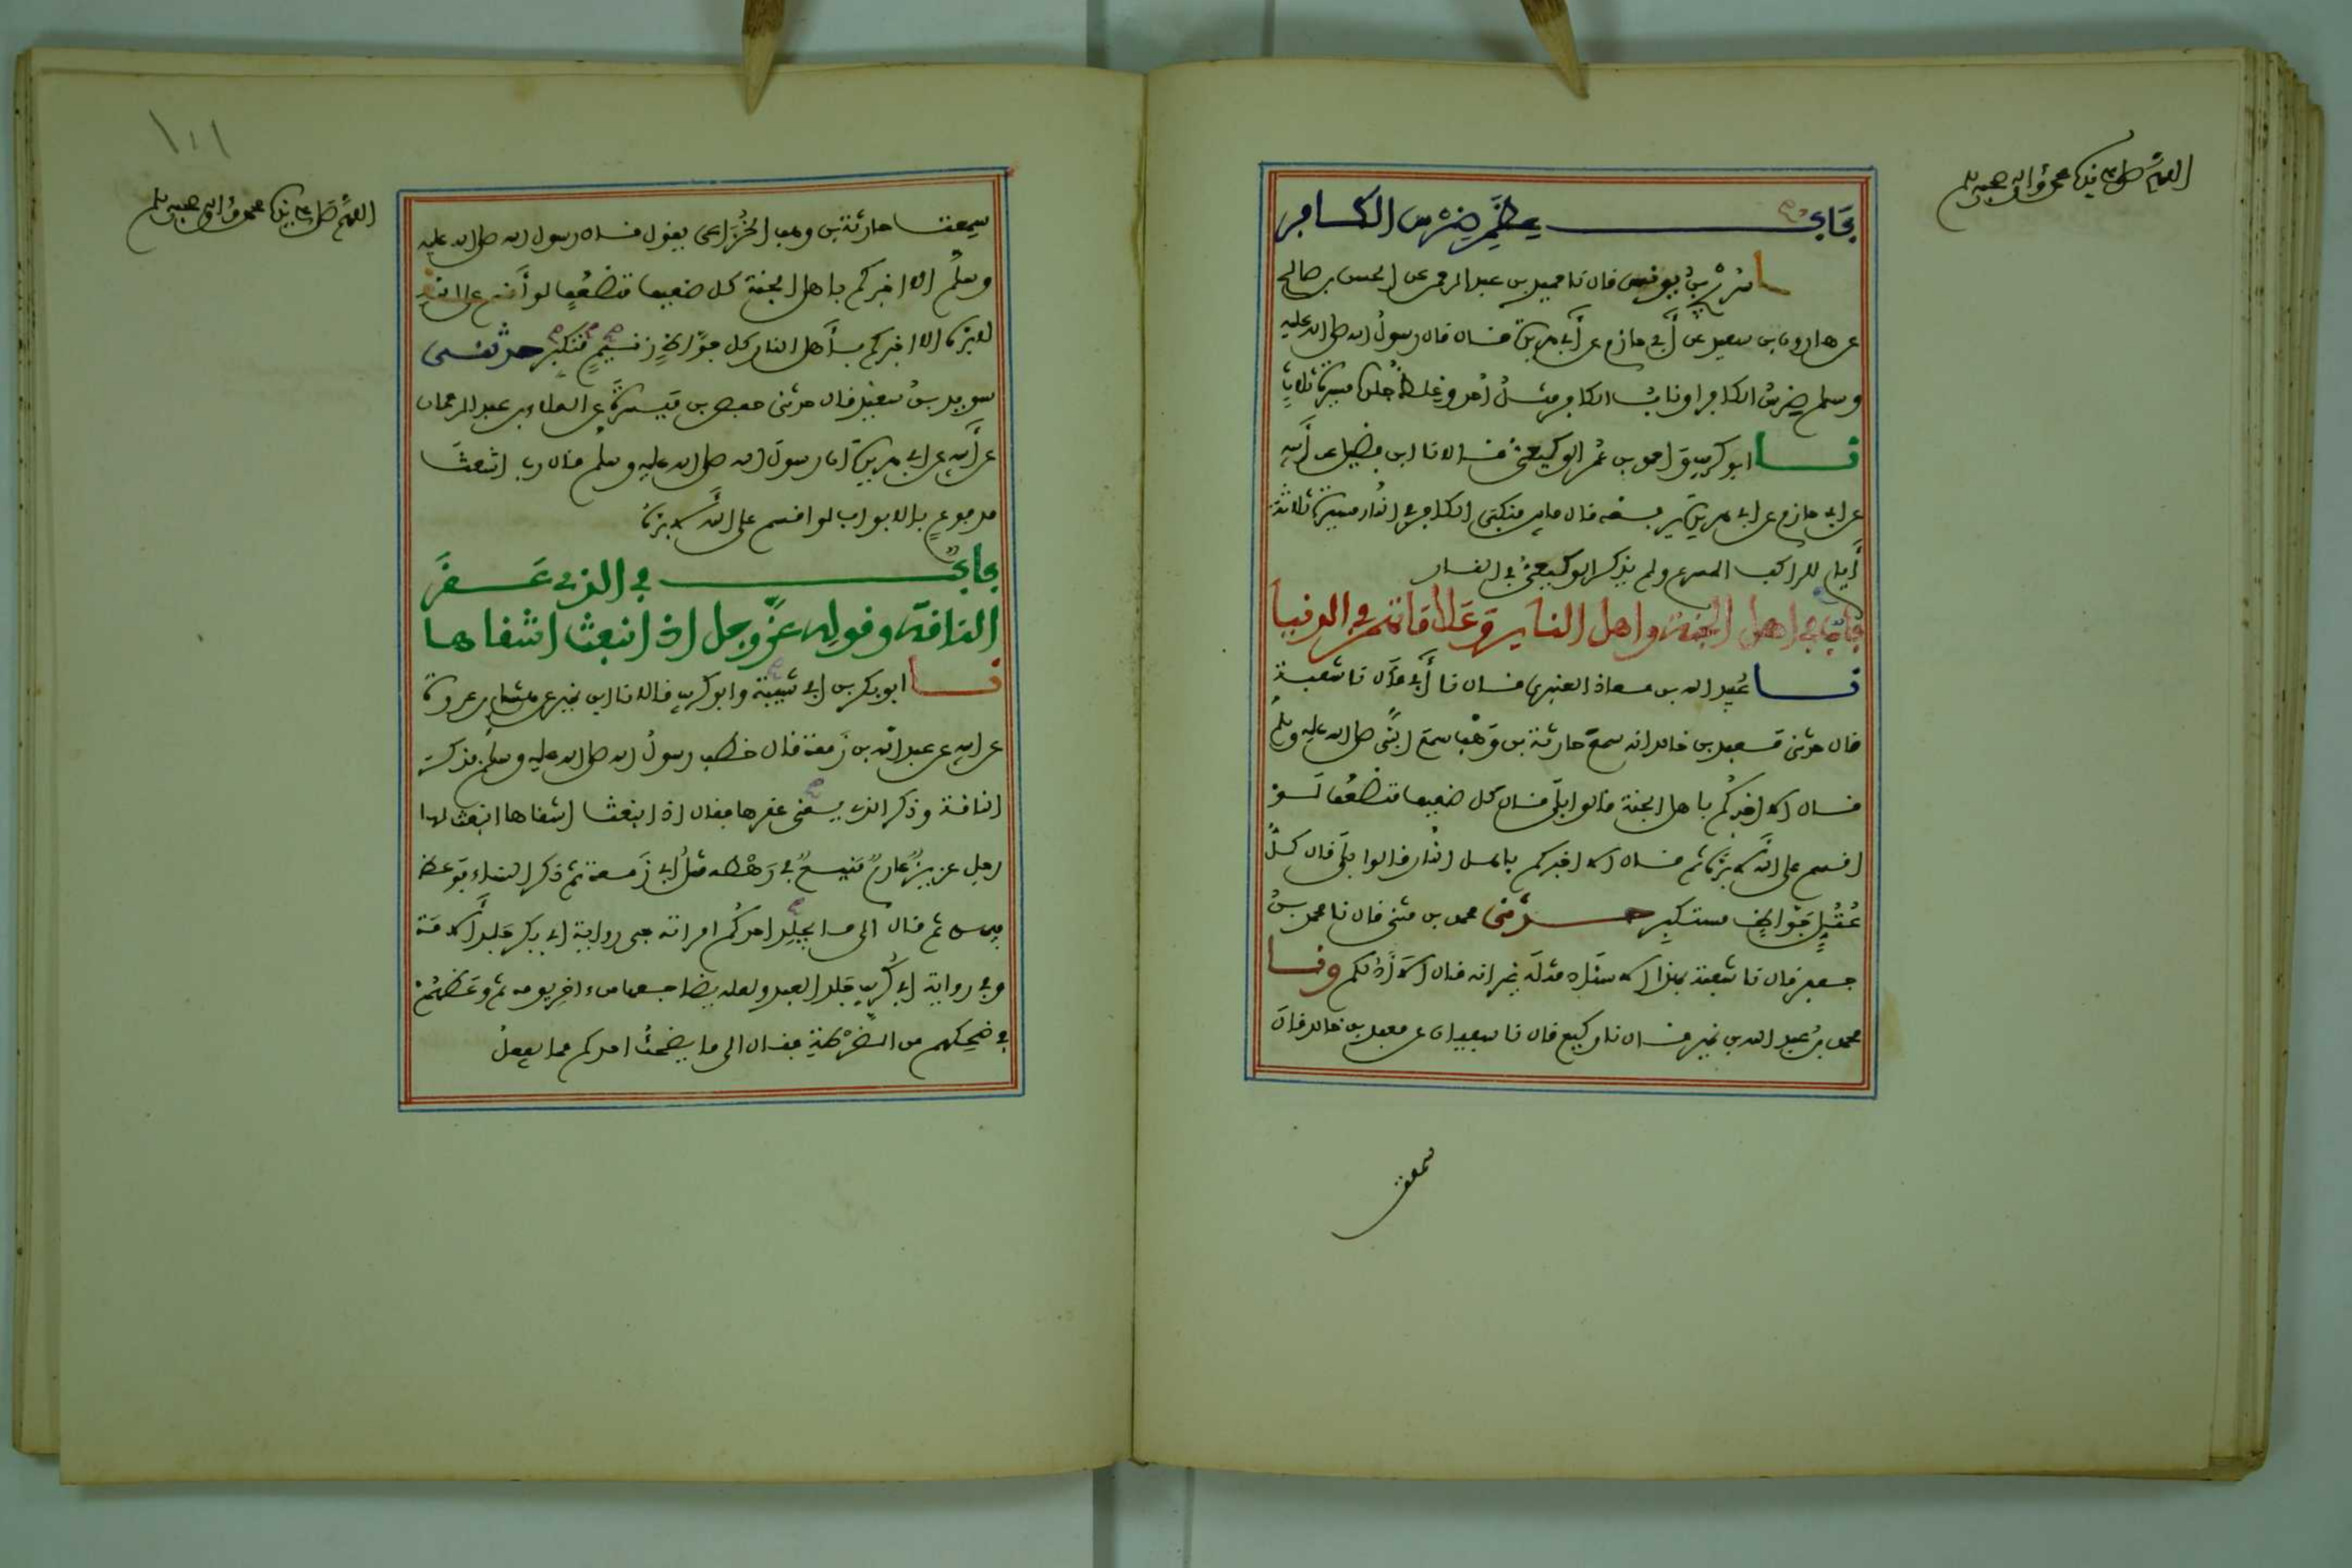 اللهم صل على نبينا محمد وآله وصحبه وسلم
باب عظم ضرس الكافر
نا سريج بن يونس قال نا حميد بن عبد الرحمن عن الحسن بن صالح
عن هارون بن سعيد عن أبي حازم عن أبي هريرة قال قال رسول الله صلى الله عليه
وسلم ضرس الكافر او ناب الكافر مثل أحد وغلظ جلده مسيرة ثلاث
نا ابو كريب واحمد بن عمر الوكيعي قالا نا ابن فضيل عن أبيه
عن ابي حازم عن ابي هريرة يرفعه قال ما بين منكبي الكافر في النار مسيرة ثلاثة
أيام للراكب المسرع ولم يذكر الوكيعي في النار
باب في اهل الجنة واهل النار وعلاماتهم في الدنيا
نا عبيد الله بن معاذ العنبري قال نا أبي قال نا شعبة
قال حدثني معبد بن خالد انه سمع حارثة بن وهب سمع النبي صلى الله عليه وسلم
قال الا اخبركم باهل الجنة قالوا بلى قال كل ضعيف متضعف لو
اقسم على الله لابره ثم قال الا اخبركم باهل النار قالوا بلى قال كل
عتل جواظ مستكبر حدثني محمد بن مثنى قال نا محمد بن
جعفر قال نا شعبة بهذا الاسناد مثله غير انه قال الا أدلكم ونا
محمد بن عبد الله بن نمير قال نا وكيع قال نا سفيان عن معبد بن خالد قال
سمعت
١٠١
اللهم صل على نبينا محمد وآله وصحبه وسلم
سمعت حارثة بن وهب الخزاعي يقول قال رسول الله صلى الله عليه
وسلم الا اخبركم باهل الجنة كل ضعيف متضعف لو أقسم على الله
لابره الا اخبركم بأهل النار كل جواظ زنيم متكبر حدثني
سويد بن سعيد قال حدثني حفص بن ميسرة عن العلاء بن عبد الرحمان
عن أبيه عن ابي هريرة ان رسول الله صلى الله عليه وسلم قال رب اشعث
مدفوع بالابواب لو اقسم على الله لابره
باب في الذي عقر
الناقة وقوله عز وجل اذ انبعث اشقاها
نا ابو بكر بن ابي شيبة وابو كريب قالا نا ابن نمير عن هشام بن عروة
عن ابيه عن عبد الله بن زمعة قال خطب رسول الله صلى الله عليه وسلم فذكر
الناقة وذكر الذي عقرها فقال اذ انبعث اشقاها انبعث لها
رجل عزيز عارم منيع في رهطه مثل أبي زمعة ثم ذكر النساء فوعظ
فيهن ثم قال الى ما يجلد احدكم امراته في رواية ابي بكر جلد الامة
وفي رواية ابي كريب جلد العبد ولعله يضاجعها من ءاخر يومه ثم وعظهم
في ضحكهم من الضرطة فقال الى ما يضحك احدكم مما يفعل